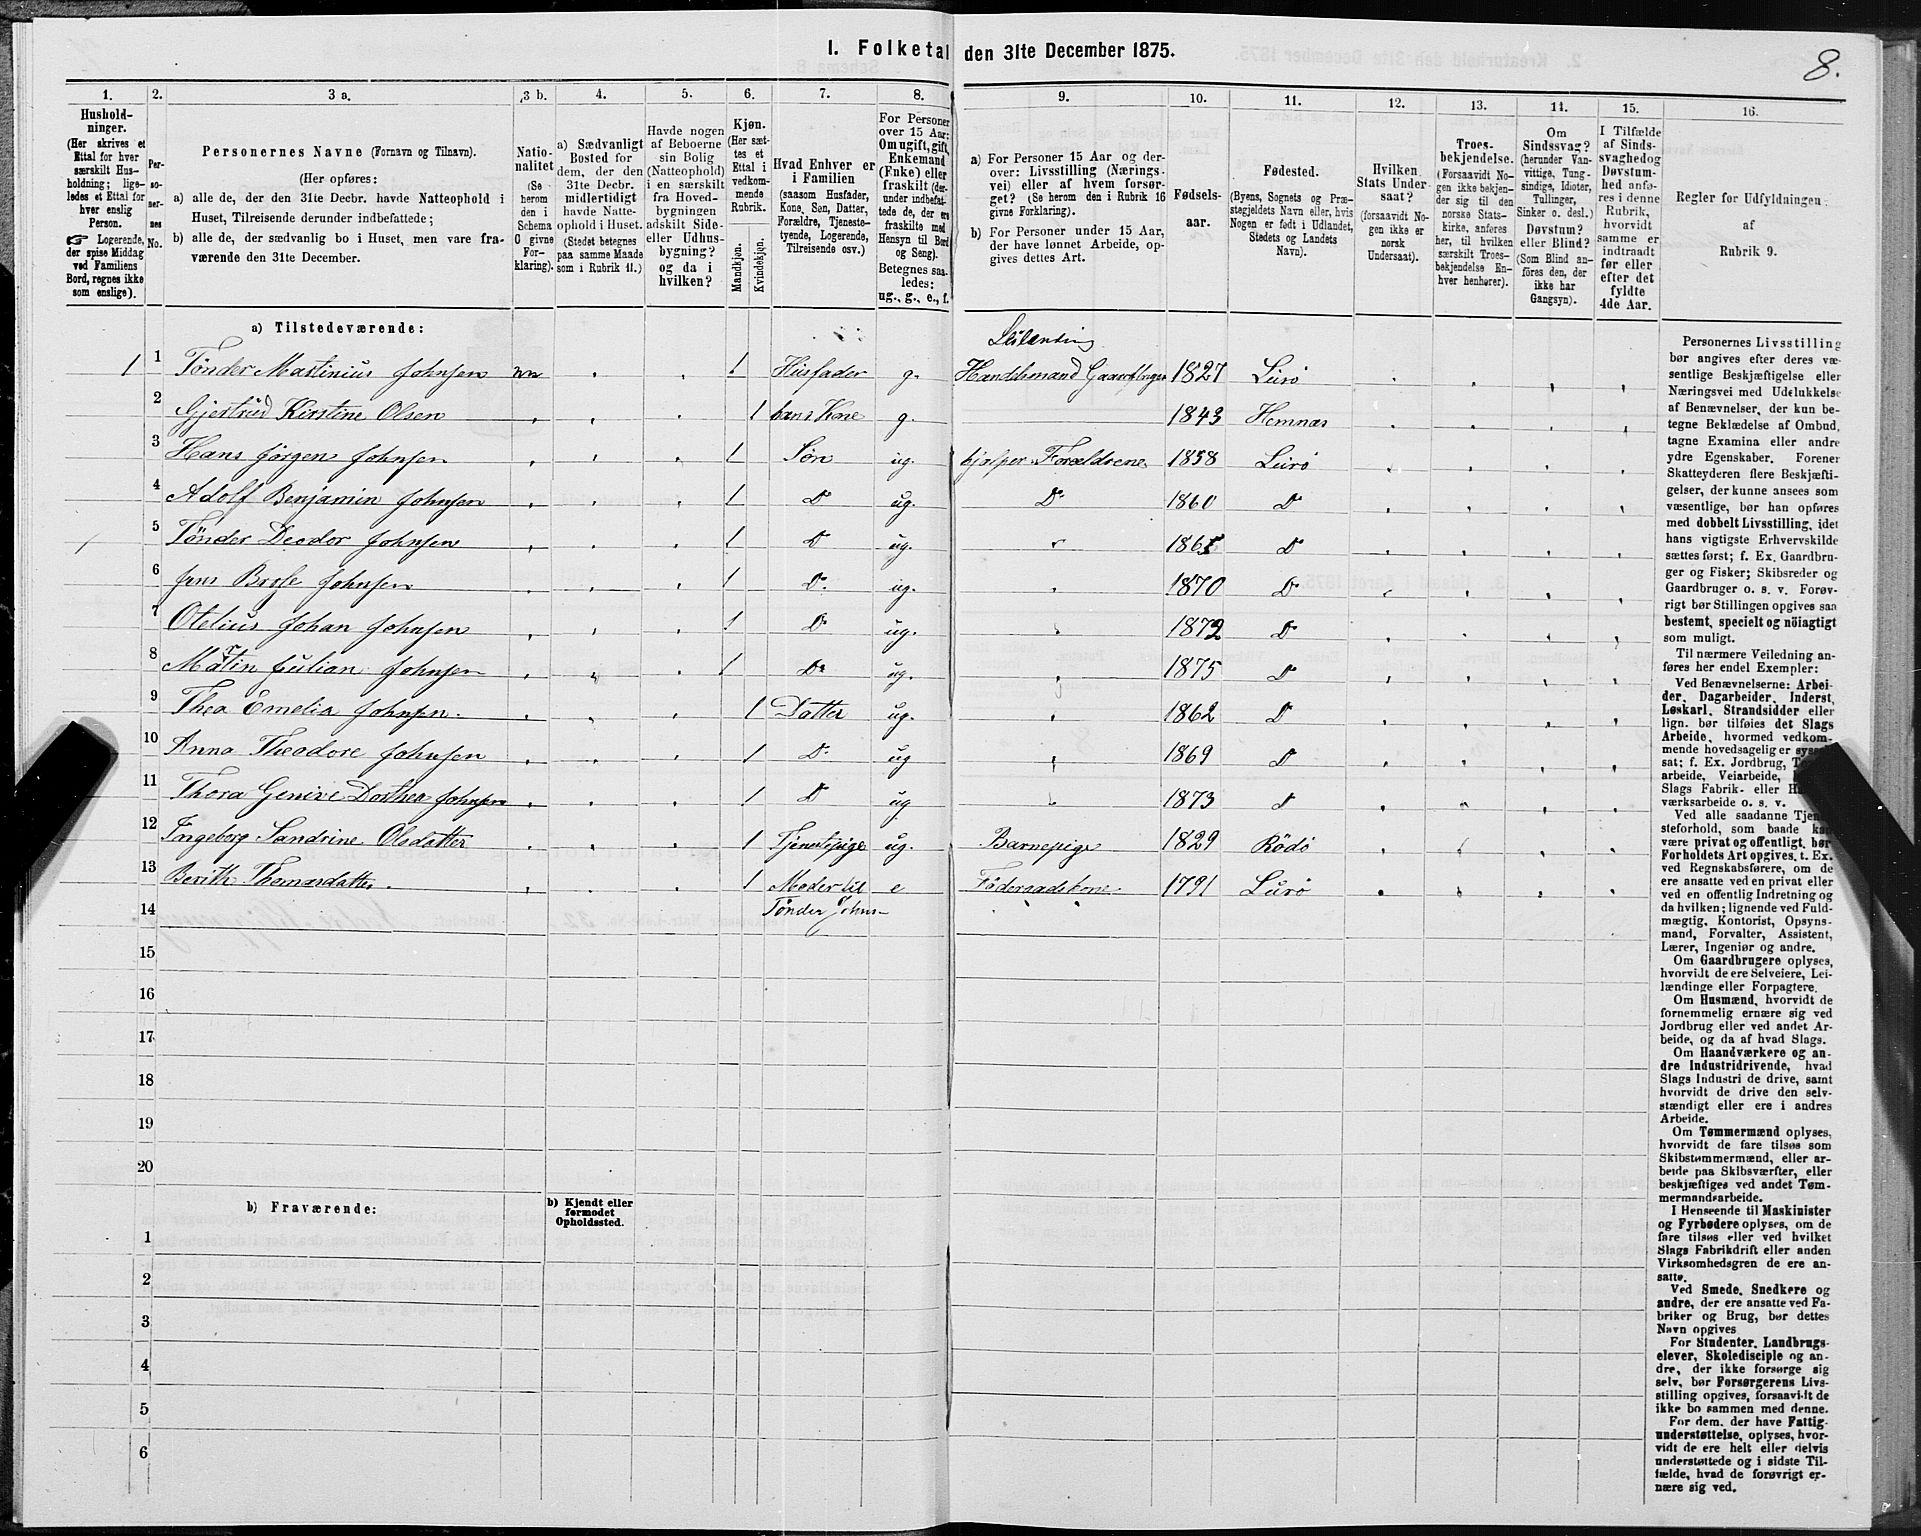 1. Folketal den 31te December 1875.
8.
1. 2. 3 a. 3 b. 4. 5. 6. 7. 8. 9. 10. 11. 12. 13. 14. 15. 16.
Hushold-
ninger.
(Her skrives et
Ettal for hver
særskilt Hus-
holdning; lige-
ledes et Ettal for
hver enslig
Person.
☞ Logerende,
der spise Middag
ved Familiens
Bord, regnes ikke
som enslige).
Per-
so-
ner-
nes
No.
Personernes Navne (Fornavn og Tilnavn).
(Her opføres:
a) alle de, der den 31te Decbr. havde Natteophold i
Huset, Tilreisende derunder indbefattede;
b) alle de, der sædvanlig bo i Huset, men vare fra-
værende den 31te December.
Natio-
nalitet
(Se
herom
den i
Schema
C givne
For-
klaring).
a) Sædvanligt
Bosted for
dem, der den
31te Decbr.
midlertidigt
havde Natte-
ophold i Huset.
(Stedet betegnes
paa samme Maade
som i Rubrik 11.)
Havde nogen
af Beboerne
sin Bolig
(Natteophold)
i en særskilt
fra Hoved-
bygningen
adskilt Side-
eller Udhus-
bygning?
og da i
hvilken?
Kjøn.
(Her sæt-
tes et
Ettal i
vedkom-
mende
Rubrik.
Mandkjøn.
Kvindekjøn.
Hvad Enhver er
i Familien
(saasom Husfader,
Kone, Søn, Datter,
Forældre, Tjeneste-
tyende, Logerende,
Tilreisende osv.)
For Personer
over 15 Aar:
Om ugift, gift,
Enkemand
(Enke) eller
fraskilt (der-
under indbefat-
tede de, der ere
fraskilte med
Hensyn til Bord
og Seng).
Betegnes saa-
ledes:
ug., g., e., f.
a) For Personer 15 Aar og der-
over: Livsstilling (Nærings-
vei) eller af hvem forsør-
get? (Se herom den i Rubrik 16
givne Forklaring).
b) For Personer under 15 Aar,
der have lønnet Arbeide, op-
gives dettes Art.
Fødsels-
aar.
Fødested.
(Byens, Sognets og Præ-
stegjeldets Navn eller, hvis
Nogen er født i Udlandet,
Stedets og Landets
Navn).
Hvilken
Stats Under-
saat?
(forsaavidt No-
gen ikke er
norsk
Undersaat).
Troes-
bekjendelse.
(Forsaavidt No-
gen ikke bekjen-
der sig til den
norske Stats-
kirke, anføres
her, til hvilken
særskilt Troes-
bekjendelse En-
hver henhører).
Om
Sindssvag?
(herunder Van-
vittige, Tung-
sindige, Idioter,
Tullinger,
Sinker o. desl.)
Døvstum?
eller Blind?
(Som Blind an-
føres den, der
ikke har
Gangsyn).
I Tilfælde
af Sinds-
svaghed og
Døvstum-
hed anfø-
res i denne
Rubrik,
hvorvidt
samme er
indtraadt
før eller
efter det
fyldte
4de Aar.
Regler for Udfyldningen
af
Rubrik 9.
a) Tilstedeværende:
Leilænding
1 1 Tönder Martinius Johnsen nn 1 Husfader g. Handelsmand Gaardbruger 1827 Lurö
2 Gjertrud Kirstine Olsen 1 hans Kone g. 1843 Hemnæs
3 Hans Jörgen Johnsen 1 Søn ug. hjelper Forældrene 1858 Lurö
4 Adolf Benjamin Johnsen 1 Do ug. Do 1860 Do
5 Tönder Deodor Johnsen 1 Do ug. 1865 Do
6 Jens Johnsen 1 Do ug. 1870 Do
7 Otelius Johan Johnsen 1 Do ug. 1872 Do
8 Martin Julian Johnsen 1 Do ug. 1875 Do
9 Thea Emelia Johnsen 1 Datter ug. 1862 Do
10 Anna Theodore Johnsen 1 Do ug 1869 Do
11 Thora Genive Dorthea Johnsen 1 Do ug 1873 Do
12 Ingeborg Sandrine Olsdatter 1 Tjenestepige ug. Barnepige 1829 Rödö
13 Berith Thomasdatter 1 Moder til e Föderaadskone 1791 Lurö
14 Tönder Johns-
15
16
17
18
19
20
b) Fraværende:
b) Kjendt eller
formodet
Opholdssted.
1
2
3
4
5
6
Personernes Livsstilling
bør angives efter deres væ-
sentlige Beskjæftigelse eller
Næringsvei med Udelukkelse
af Benævnelser, der kun be-
tegne Beklædelse af Ombud,
tagne Examina eller andre
ydre Egenskaber. Forener
Skatteyderen flere Beskjæfti-
gelser, der kunne ansees som
væsentlige, bør han opføres
med dobbelt Livsstilling, idet
hans vigtigste Erhvervskilde
sættes først; f. Ex. Gaardbru-
ger og Fisker; Skibsreder og
Gaardbruger o. s. v. Forøv-
rigt bør Stillingen opgives saa
bestemt, specielt og nöiagtigt
som muligt.
Til nærmere Veiledning an-
føres her endel Exempler:
Ved Benævnelserne: Arbei-
der, Dagarbeider, Inderst,
Løskarl, Strandsidder eller
lign. bør tilføies det Slags
Arbeide, hvormed vedkom-
mende hovedsagelig er syssel-
sat; f. Ex. Jordbrug,
arbeide, Veiarbeide,
Slags Fabrik- eller
værksarbeide o. s. v.
Ved alle saadanne Tjene-
steforhold, som baade kan
være privat og offentligt, bør
Forholdets Art opgives, t. Ex.
ved Regnskabsførere, om de
ere ansatte ved en privat eller
ved en offentlig Indretning og
da hvilken; lignende ved Fuld-
mægtig, Kontorist, Opsyns-
mand, Forvalter, Assistent,
Lærer, Ingeniør og andre.
Om Gaardbrugere oplyses,
hvorvidt de ere Selveiere, Lei-
lændinge eller Forpagtere.
Om Husmænd, hvorvidt de
fornemmelig ernære sig ved
Jordbrug eller ved andet Ar-
beide, og da af hvad Slags.
Om Haandværkere og an-
dre Industridrivende, hvad
Slags Industri de drive, samt
hvorvidt de drive den selv-
stændigt eller ere i andres
Arbeide.
Om Tømmermænd oplyses,
hvorvidt de fare tilsøs som
Skibstømmermænd, eller ar-
beide paa Skibsværfter, eller
beskjæftiges ved andet Tøm-
mermandsarbeide.
I Henseende til Maskinister
og Fyrbødere oplyses, om de
fare tilsøs eller ved hvilket
Slags Fabrikdrift eller anden
Virksomhedsgren de ere an-
satte.
Ved Smede, Snedkere og
andre, der ere ansatte ved Fa-
briker og Brug, bør dettes
Navn opgives
For Studenter, Landbrugs-
elever, Skoledisciple og an-
dre, der ikke forsørge sig
selv, bør Forsørgerens Livs-
stilling opgives, forsaavidt de
ikke bo sammen med denne.
For dem, der have Fattig-
understøttelse, oplyses, hvor-
vidt de ere helt eller delvis
understøttede og i sidste Til-
fælde, hvad de forøvrigt er-
nære sig ved.